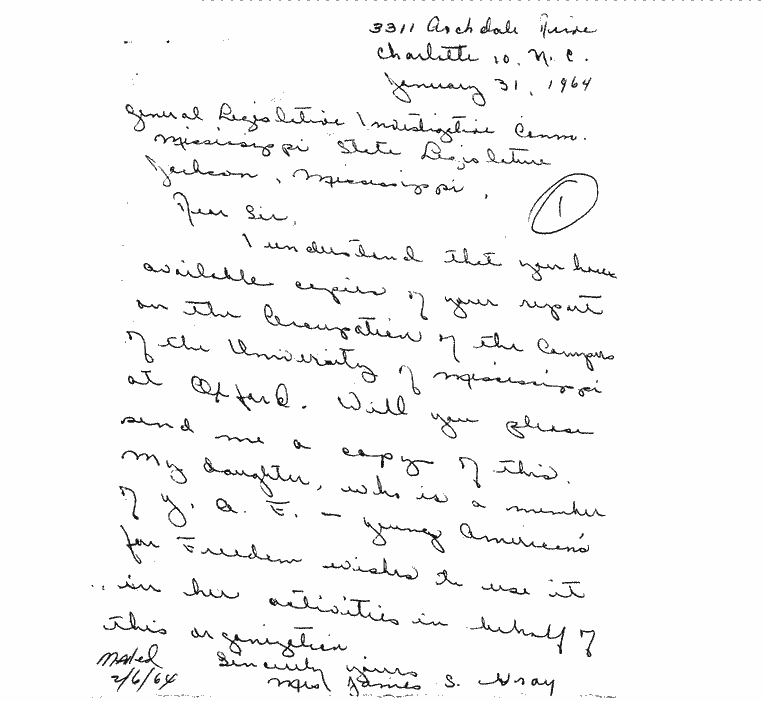 3311 Archdale Drive
Charlotte 10, N. C.
January 31, 1964
General Legislative Investigative Comm.
Mississippi State Legislature
Jackson, Mississippi.
1
Dear Sir,
I understand that you have
available copies of your report
on the Occupation of the Campus
of the University of Mississippi
at Oxford. Will you please
send me a copy of this.
My daughter, who is a member
of Y. A. F. – Young American's
for Freedom wishes to use it
in her activities in behalf of
this organization
Sincerely yours
Mrs James S. Gray
Mailed
2/6/64